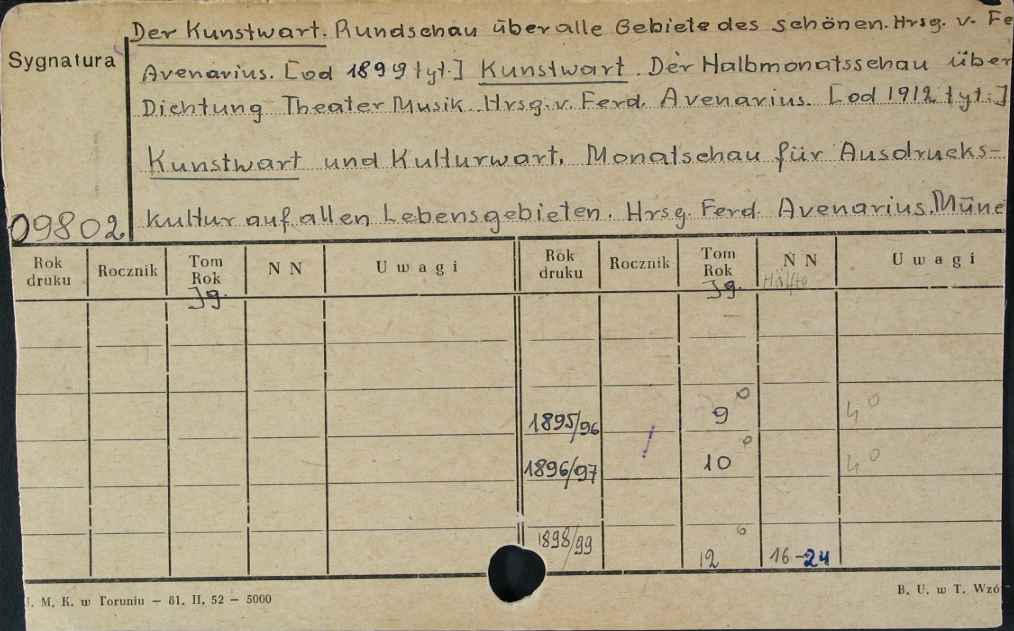 Der Kunstwart. Rundschau über alle Gebiete des schönen. Hrsg. v. Fe
Sygnatura
Avenarius. [od 1899 tyt.] Kunstwart. Der Halbmonatsschau über
Dichtung Theater Musik. Hrsg. v. Ferd. Avenarius. [od 1912 tyt.:]
Kunstwart und Kulturwart. Monatschau für Ausdrucks-
09802
kultur auf allen Lebensgebieten. Hrsg. Ferd. Avenarius. Münc
Rok druku Rocznik Tom Rok N N Uwagi Rok druku Rocznik Tom Rok N N Uwagi
Jg. Jg. Hälfte
1895/96 9 4°
1896/97 10 4°
1898/99 12 16-24
. M. K. w Toruniu – 61. II, 52 – 5000 B. U. w T. Wzó